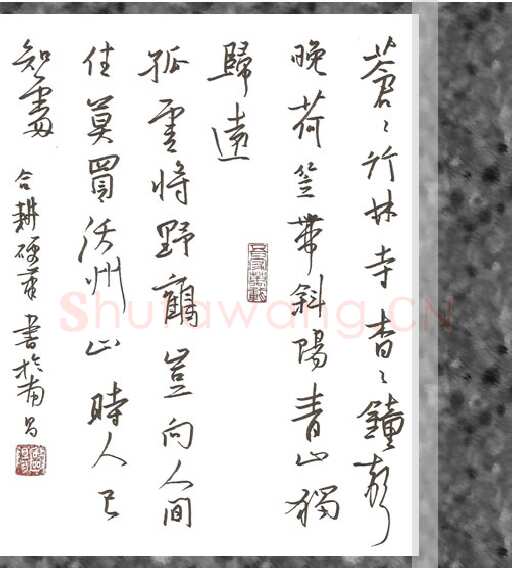 蒼々竹林寺杳々鐘聲
晚荷笠帶斜陽青山獨
歸遠
孤雲將野鶴豈向人間
住莫買沃州山時人已
知處 合耕硬筆書於南昌
Shufawang.CN